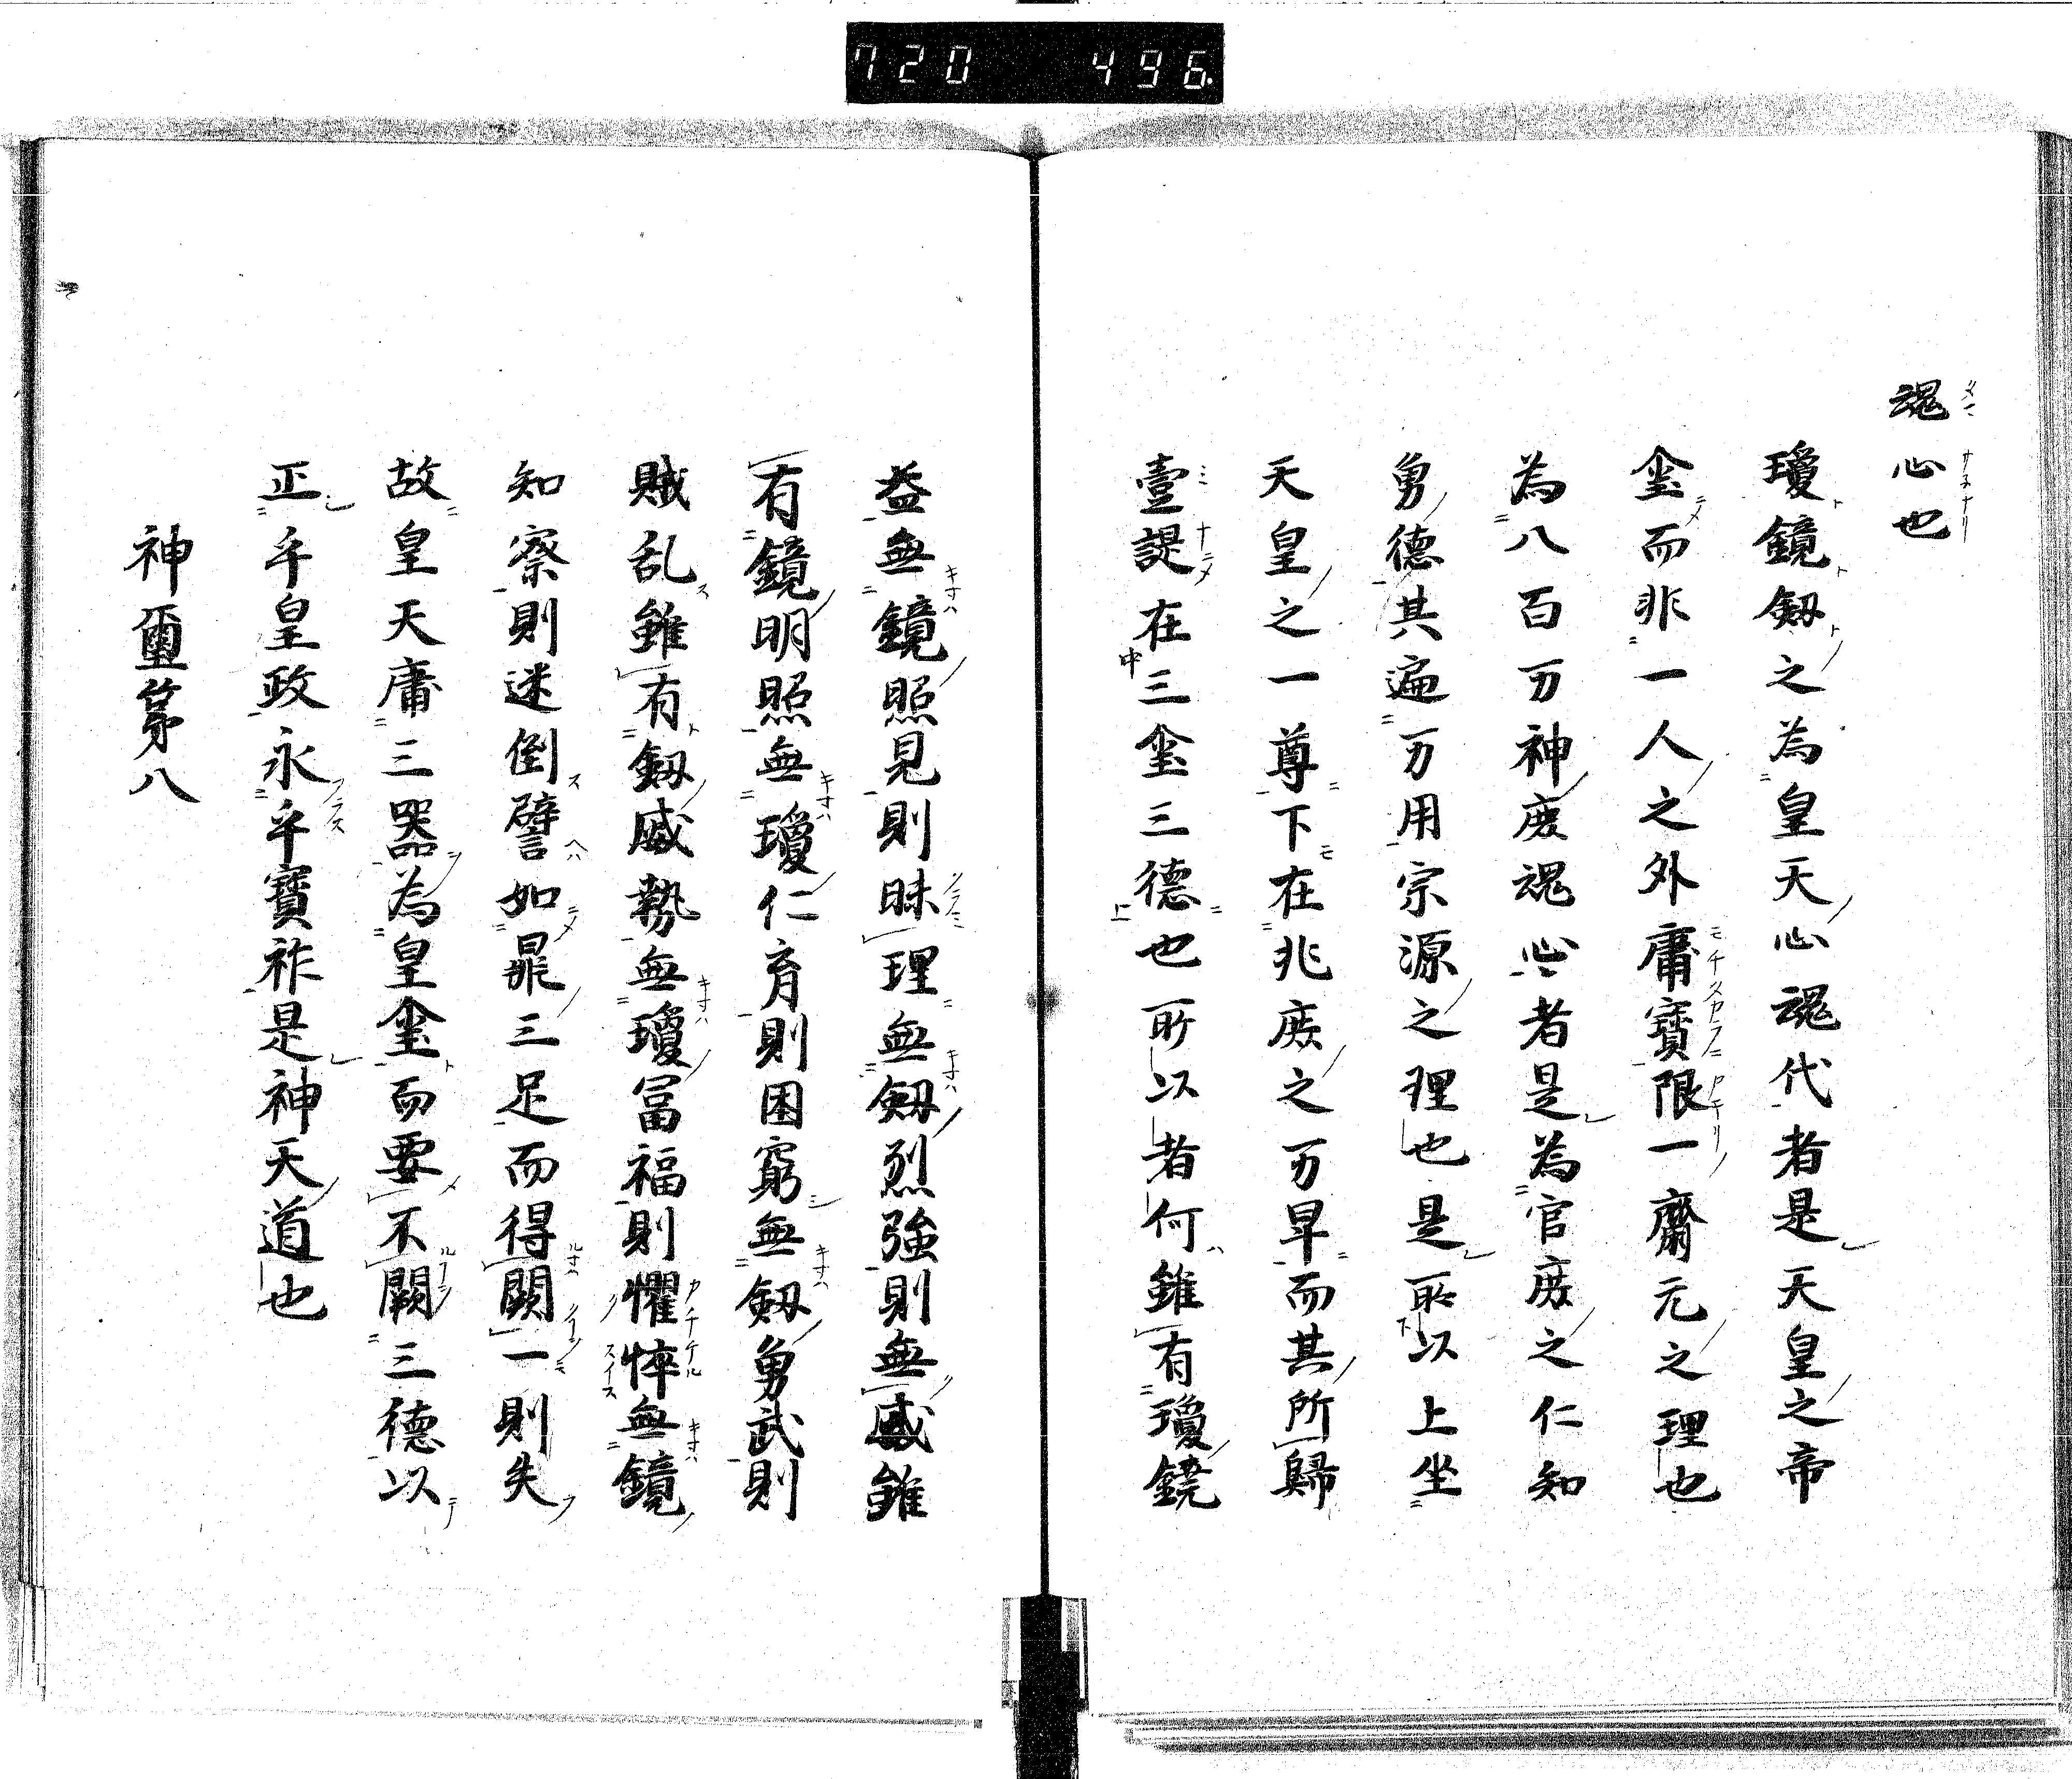 720 496
魂心也
瓊鏡釼之為皇天心魂代者是天皇之帝
璽而非一人之外庸寶限一齋元之理也
為八百万神庶魂心者是為官庶之仁知
勇德其遍万用宗源之理也是所以上坐
天皇之一尊下在兆庶之万卑而其所歸
壹諟在三璽三德也所以者何雖有瓊鏡
益無鏡照見則昧理無釼烈強則無威雖
有鏡明照無瓊仁育則困窮無釼勇武則
賊乱雖有釼威勢無瓊冨福則懼悴無鏡
知察則迷倒譬如鼎三足而得闕一則失
故皇天庸三器為皇璽而要不闕三德以
正乎皇政永乎寶祚是神天道也
神璽第八